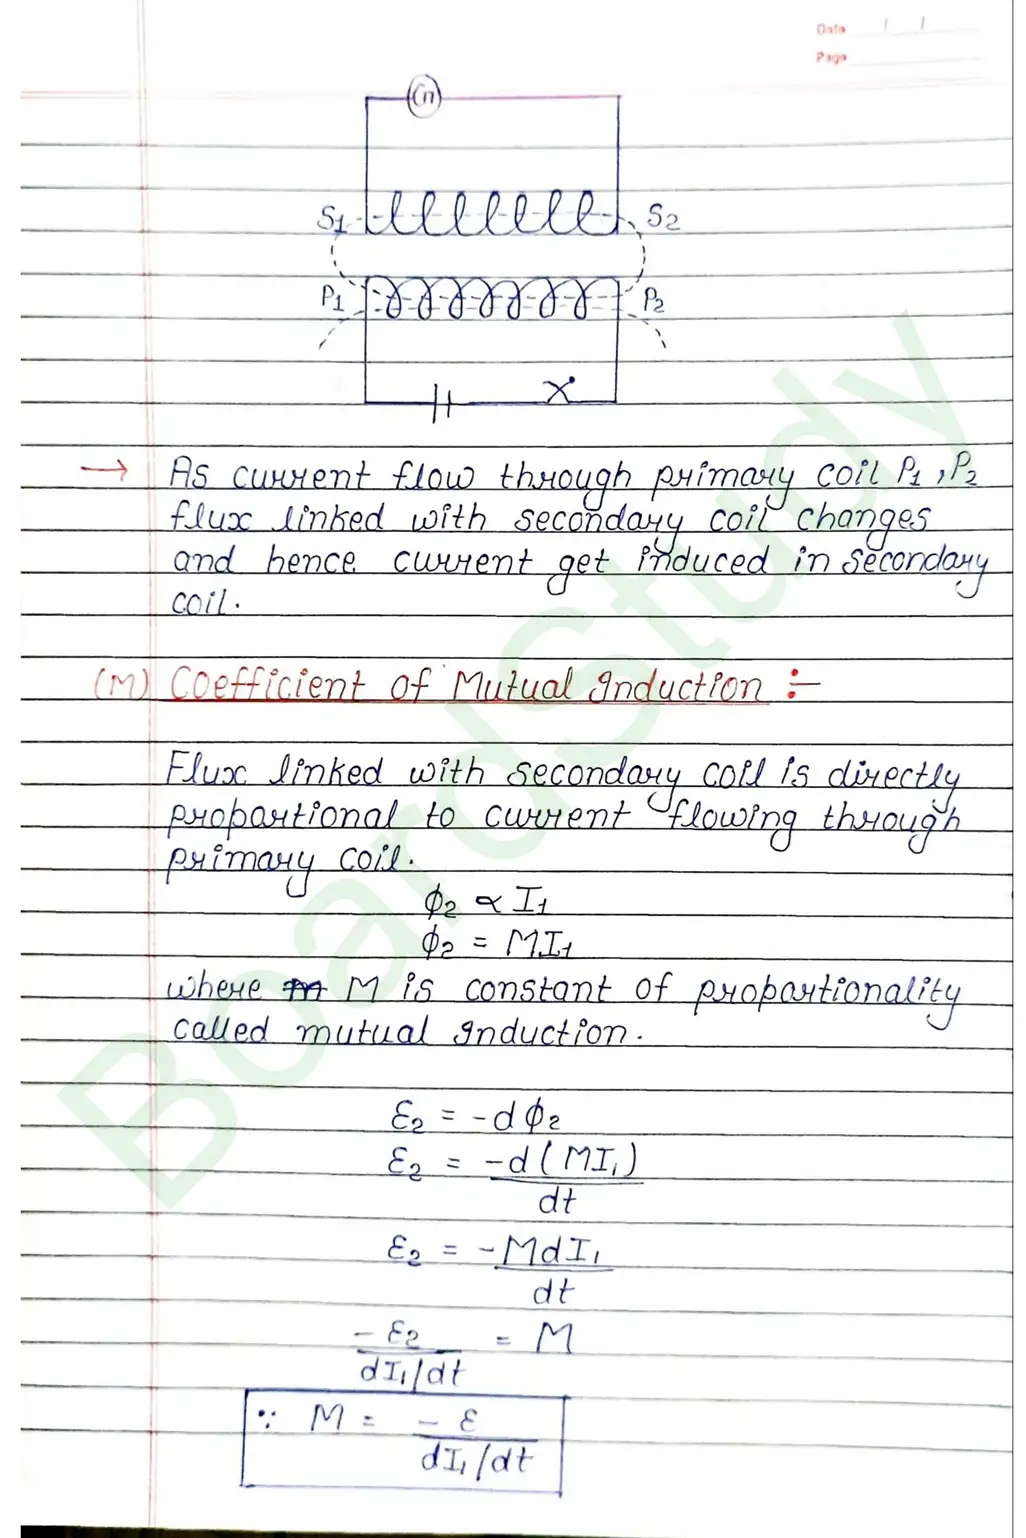 Date / /
Page
G
S1 S2
P1 P2
→ As current flow through primary coil P1, P2
flux linked with secondary coil changes
and hence current get induced in secondary
coil.
(M) Coefficient of Mutual Induction :-
Flux linked with secondary coil is directly
proportional to current flowing through
primary coil.
ϕ2 ∝ I1
ϕ2 = MI1
where M is constant of proportionality
called mutual Induction.
ε2 = -dϕ2
ε2 = -d(MI1)
dt
ε2 = -MdI1
dt
-ε2 = M
dI1/dt
∵ M = -ε
dI1/dt
BoardStudy